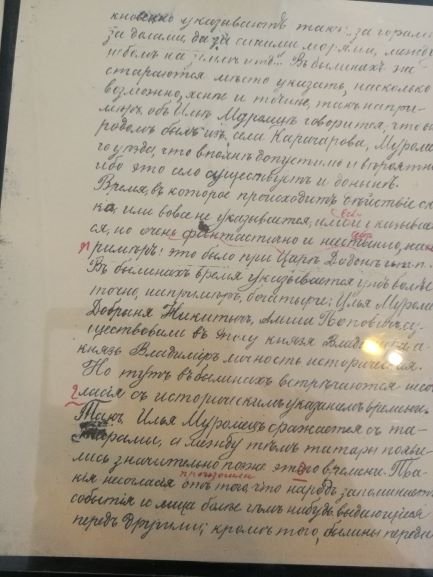 кновенно указываютъ такъ: „за горами
за долами, да за синими морями, между
небомъ на землѣ итд.“ Въ былинахъ же
стараются мѣсто указать, насколько
возможно, яснѣе и точнѣе, такъ напри-
мѣръ, объ Ильѣ Муромцѣ говорится, что
родомъ былъ изъ села Карачарова, Муромска
го уѣзда, что вполнѣ допустимо и вѣроятно
ибо это село существуетъ и донынѣ.
Время, въ которое происходитъ дѣйствіе ска
ка, или вовсе не указывается, или
ся, но очень фантастично и
примѣръ: это было при Царѣ Додонѣ и т. п.
Въ былинахъ время указывается уже
точно, напримѣръ, богатыри: Илья Муромецъ
Добрыня Никитичъ, Алёша Поповичъ, су
ществовали въ эпоху князя Владиміра, а
князь Владиміръ личность историческая.
Но тутъ въ былинахъ встрѣчаются несо
гласія съ историческимъ указаніемъ времени.
Такъ, Илья Муромецъ сражается съ та
тарами, а между тѣмъ татары появи
лись значительно позже этого времени. Та
кія несогласія произошли отъ того, что народъ запоминаетъ
событія и лица болѣе чѣмъ нибудь выдающіеся
передъ другими; кромѣ того, былины